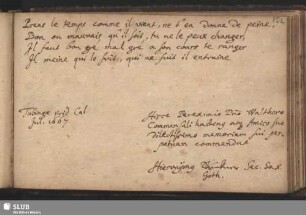 Prens le temps comme il vient, ne t'en donne de peine.
Bon, ou mauvais qu'il soit, tu ne le peux changer,
Il faut bon gré mal gré a son cours te ranger
Il meine qui le suit, qui ne suit il entraine
Tubingæ prid. Cal.
Jul. 1607
Hisce Dno
Commensali Amico suo
memoriam sui per-
petuam commendat
Hieronymus Sax.
Goth.
SLUB
Wir führen Wissen.